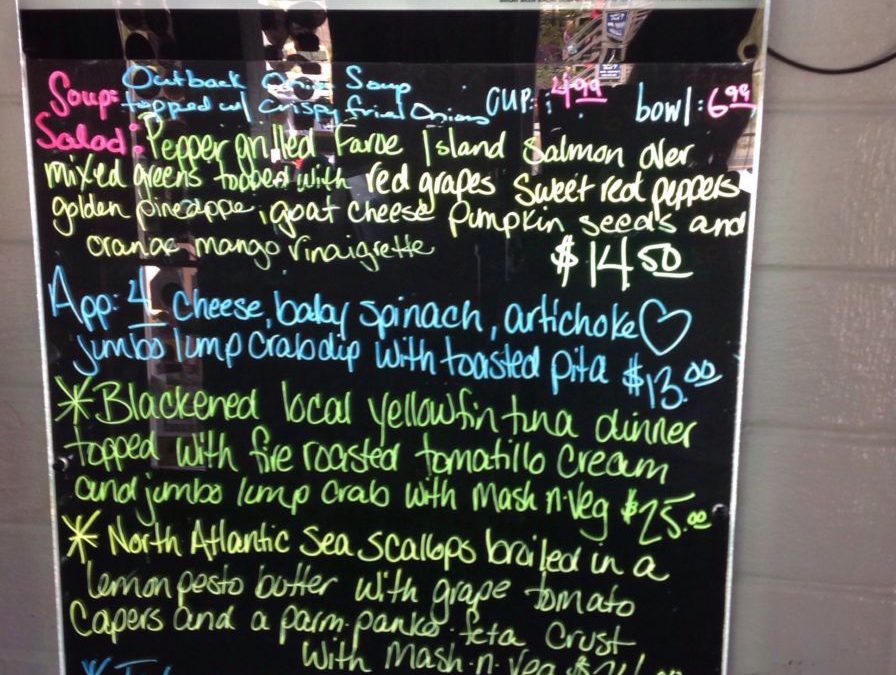 Soup: Outback Onion Soup
topped w/ Crispy fried Onions CUP: 4.99 bowl: 6.99
Salad: Pepper grilled Faroe Island Salmon over
mixed greens topped with red grapes Sweet red peppers
golden pineapple, goat cheese pumpkin seeds and
orange mango vinaigrette $14.50
App: 4 cheese, baby spinach, artichoke
jumbo lump crab dip with toasted pita $13.00
*Blackened local yellowfin tuna dinner
topped with fire roasted tomatillo cream
and jumbo lump crab with Mash n-Veg $25.00
* North Atlantic Sea Scallops broiled in a
lemon pesto butter with grape tomato
Capers and a parm-panko-feta Crust
with Mash-n-Veg